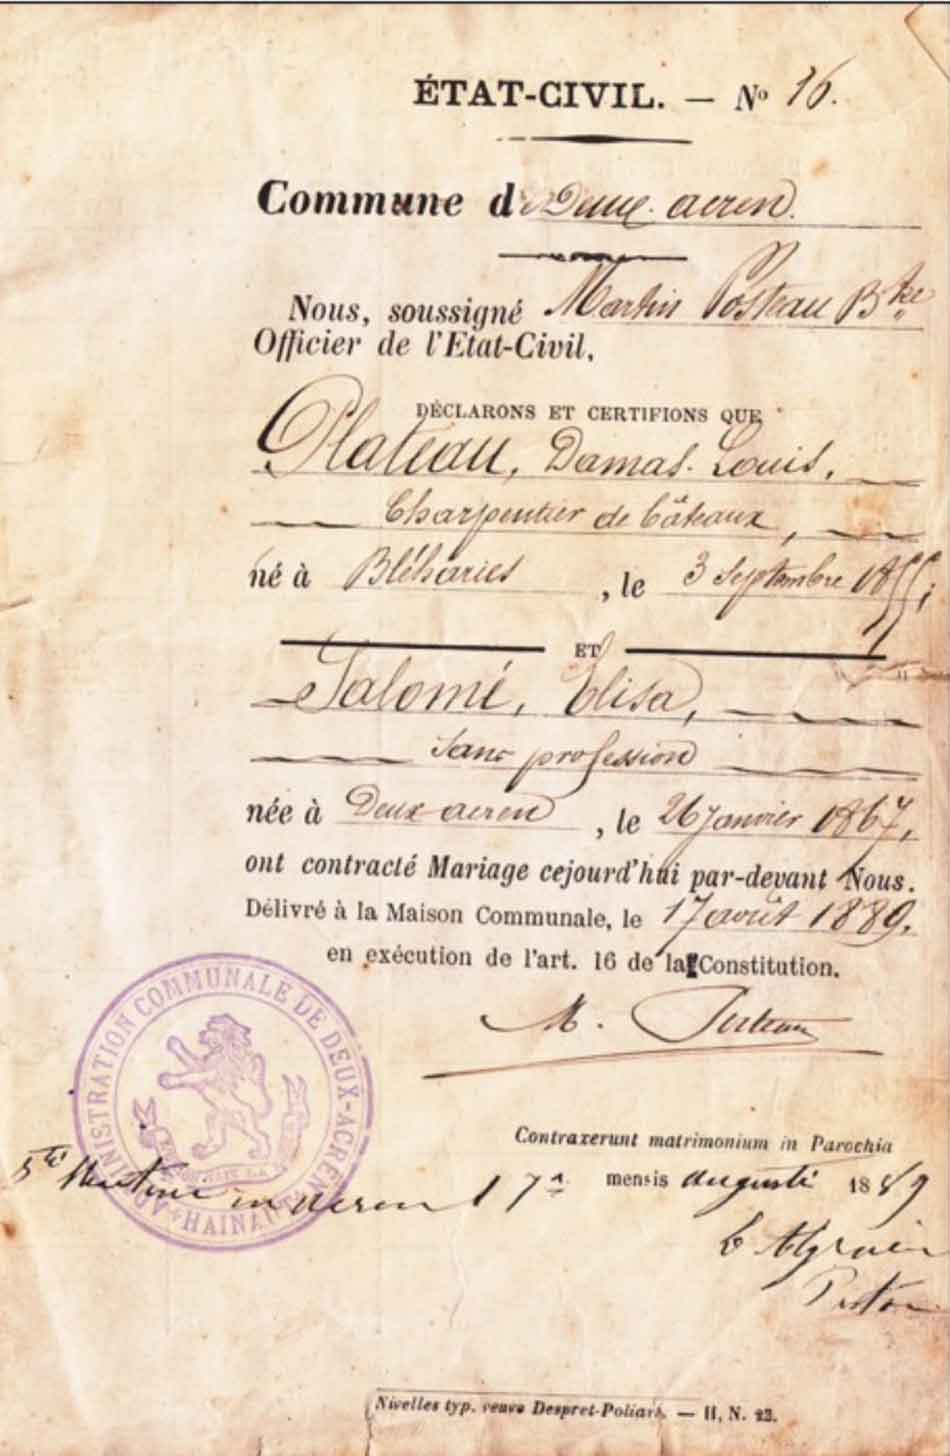 ÉTAT-CIVIL. — No 16.
Commune de Deux-acren.
Nous, soussigné Martin Posteau Btre
Officier de l'Etat-Civil,
DÉCLARONS ET CERTIFIONS QUE
Plateau, Damas-Louis,
Charpentier de bâteaux,
né à Bléharies, le 3 Septembre 1855;
ET
Salomé, Elisa,
Sans profession
née à Deux-acren, le 26 Janvier 1867,
ont contracté Mariage cejourd'hui par-devant Nous.
Délivré à la Maison Communale, le 17 août 1889.
en exécution de l'art. 16 de la Constitution.
M.
ADMINISTRATION COMMUNALE DE DEUX-ACREN
HAINAUT
Contraxerunt matrimonium in Parochia
Sti Martini in acren 17a mensis augusti 1889
Nivelles typ. veuve Despret-Poliart. — H, N. 23.